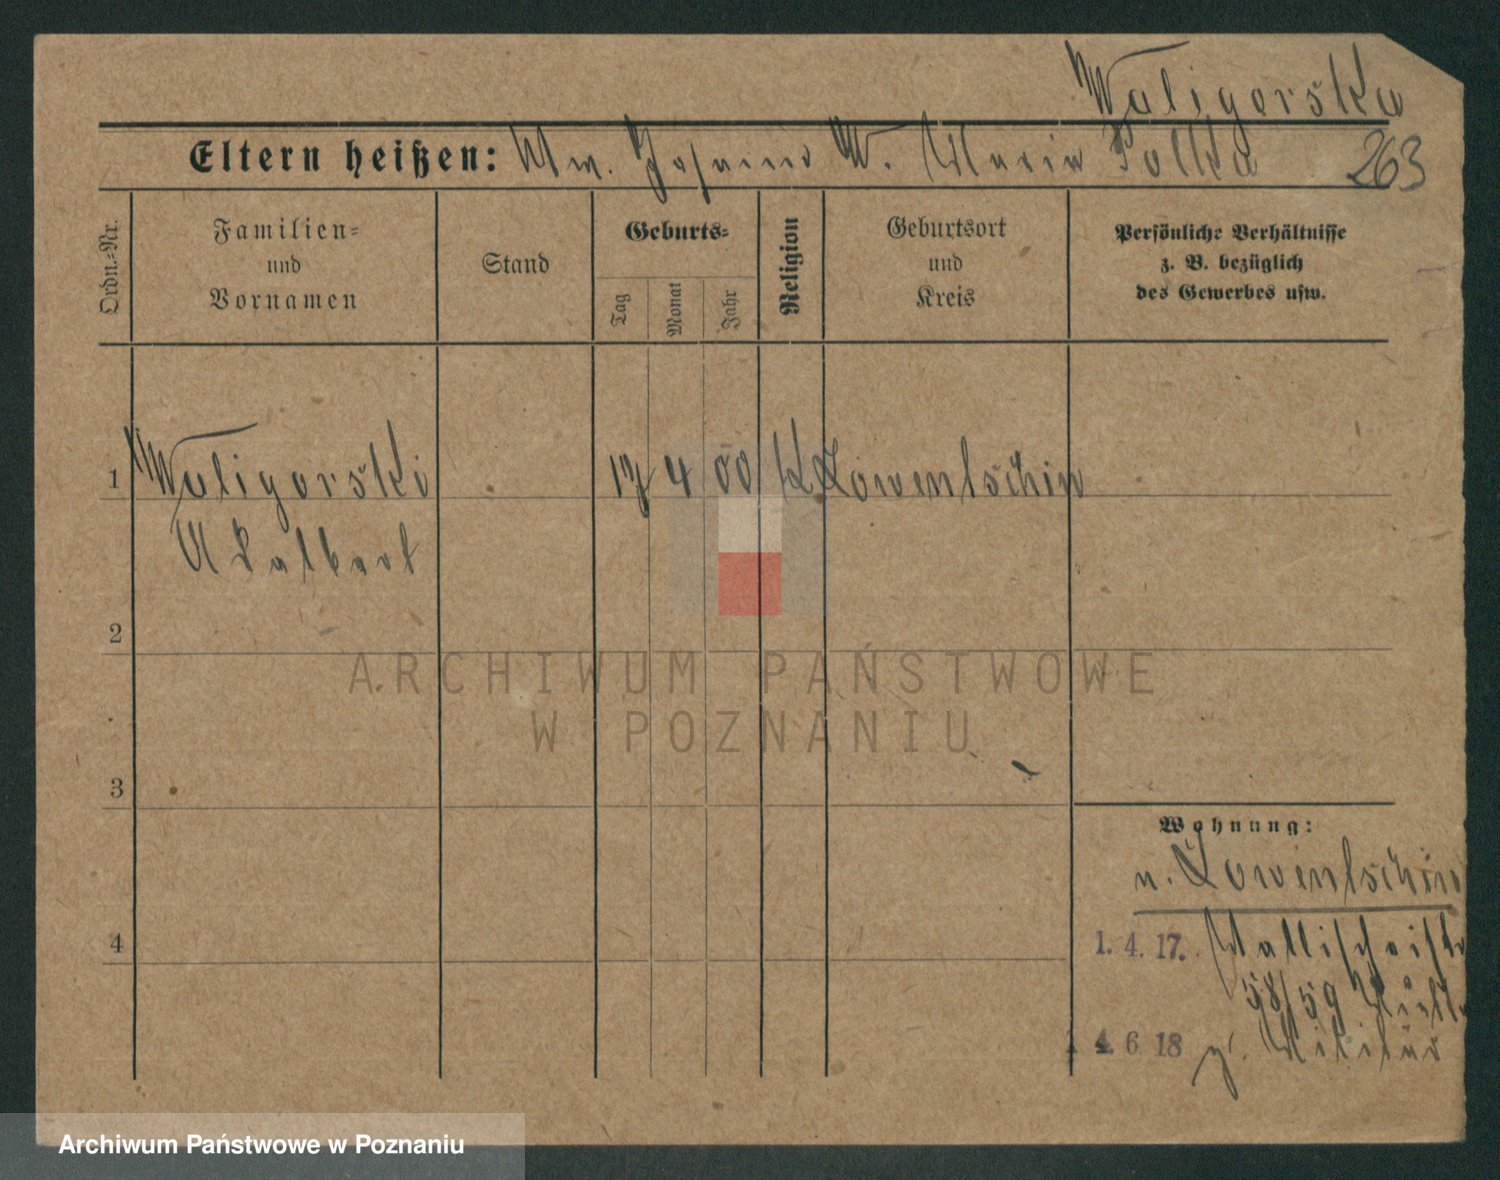 Waligorska
Eltern heißen: Ww. Johanna W. Maria Polka 263
Ordn.-Nr.
Familien-
und
Vornamen
Stand
Geburts-
Tag
Monat
Jahr
Religion
Geburtsort
und
Kreis
Persönliche Verhältnisse
z. B. bezüglich
des Gewerbes usw.
1 Waligorski 17 4 00 K Lowentschin
Adalbert
2
ARCHIWUM PAŃSTWOWE
W POZNANIU
3
Wohnung:
n. Lowentschin
4
1. 4. 17. Wallischeistr
58/59
4. 6 18 z. Militär
Archiwum Państwowe w Poznaniu